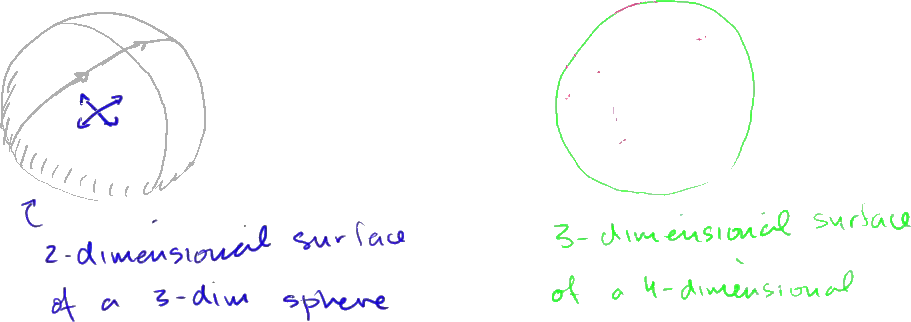 2-dimensional surface
of a 3-dim sphere
3-dimensional surface
of a 4-dimensional